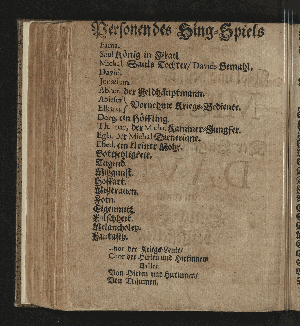 Personen des Sing-Spiels
Fama.
Saul König in Israel
Michal Sauls Tochter / Davids Gemahl.
David.
Jonathan.
Abner der Feldhauptmann.
Vornehme Kriegs-Bediente.
Doeg, ein Höffling.
der Michal Kammer-Jungfer.
der Michal Dienerinne.
ein kleiner Mohr.
Gottseligkeit.
Tugend.
Mißgunst.
Hoffart.
Mißtrauen.
Zorn.
Eigennutz.
Falschheit.
Melancholey.
Fantasey.
Chor der Kriegs-Leute
Chor der Hirten und Hirtinnen
Ballet
Von Hirten und Hirtinnen
Von